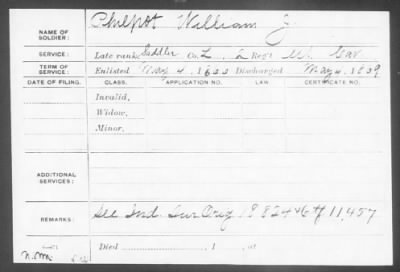 NAME OF SOLDIER: Philpot William J.
SERVICE: Late rank, Saddler Co. L, 2 Reg't US. Cav.
TERM OF SERVICE: Enlisted May 4, 18 Discharged May 4, 18
DATE OF FILING. CLASS. APPLICATION NO. LAW. CERTIFICATE NO.
Invalid,
Widow,
Minor,
ADDITIONAL SERVICES:
REMARKS: See Ind. Sur Orig 11,457
Died , 1 , at